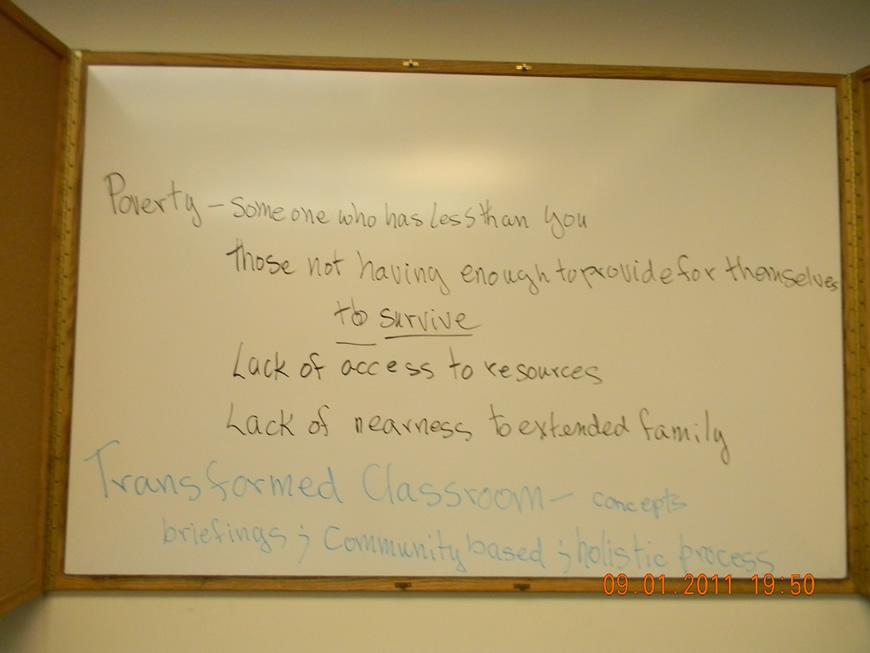 Poverty - Someone who has less than you
those not having enough to provide for themselves
to survive
Lack of access to resources
Lack of nearness to extended family
Transformed Classroom - concepts
briefings ; Community based ; holistic process
09.01.2011 19:50